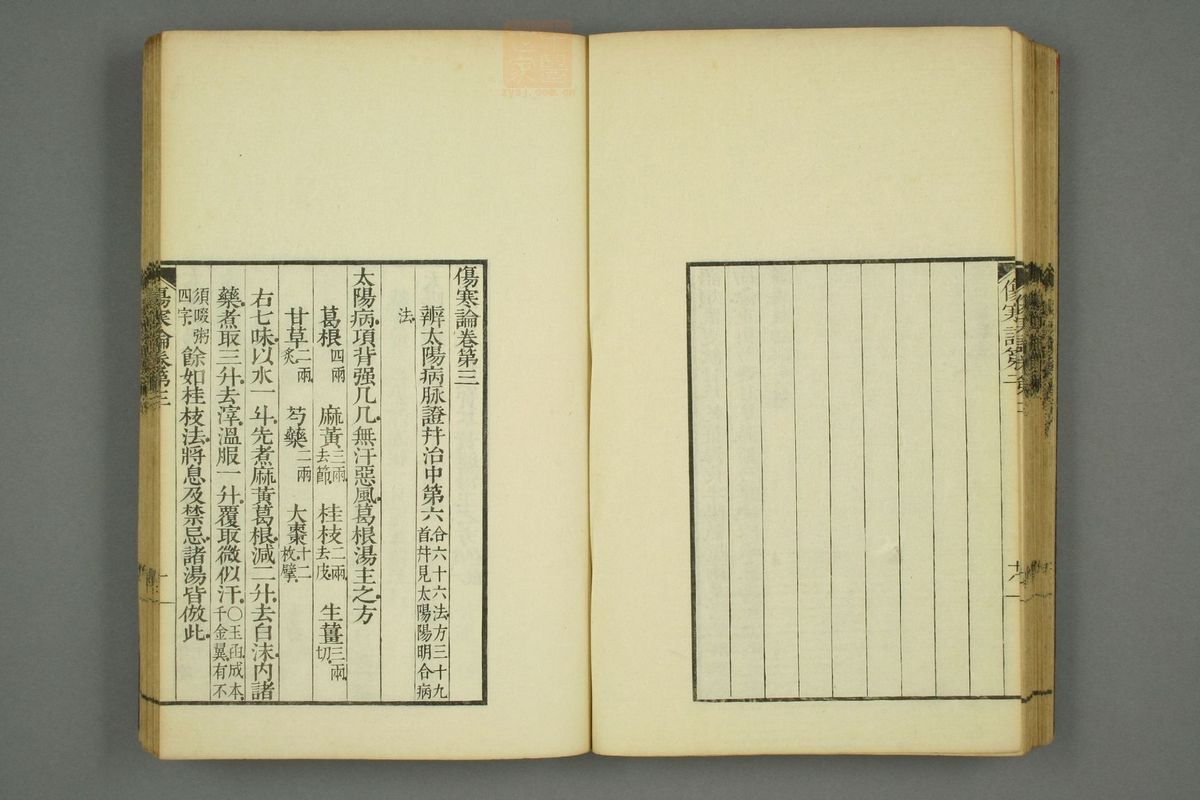 傷寒論卷第三
辨太陽病脉證幷治中第六 合六十六法方三十九首幷見太陽陽明合病法
太陽病項背强几几無汗惡風葛根湯主之方
葛根四兩 麻黃三兩去節 桂枝二兩去皮 生薑三兩切
甘草二兩炙 芍藥二兩 大棗十二枚擘
右七味以水一斗先煮麻黃葛根減二升去白沫内諸
藥煮取三升去滓溫服一升覆取微似汗〇玉函成本千金翼有不
須啜粥四字餘如桂枝法將息及禁忌諸湯皆倣此
傷寒論卷第三
一